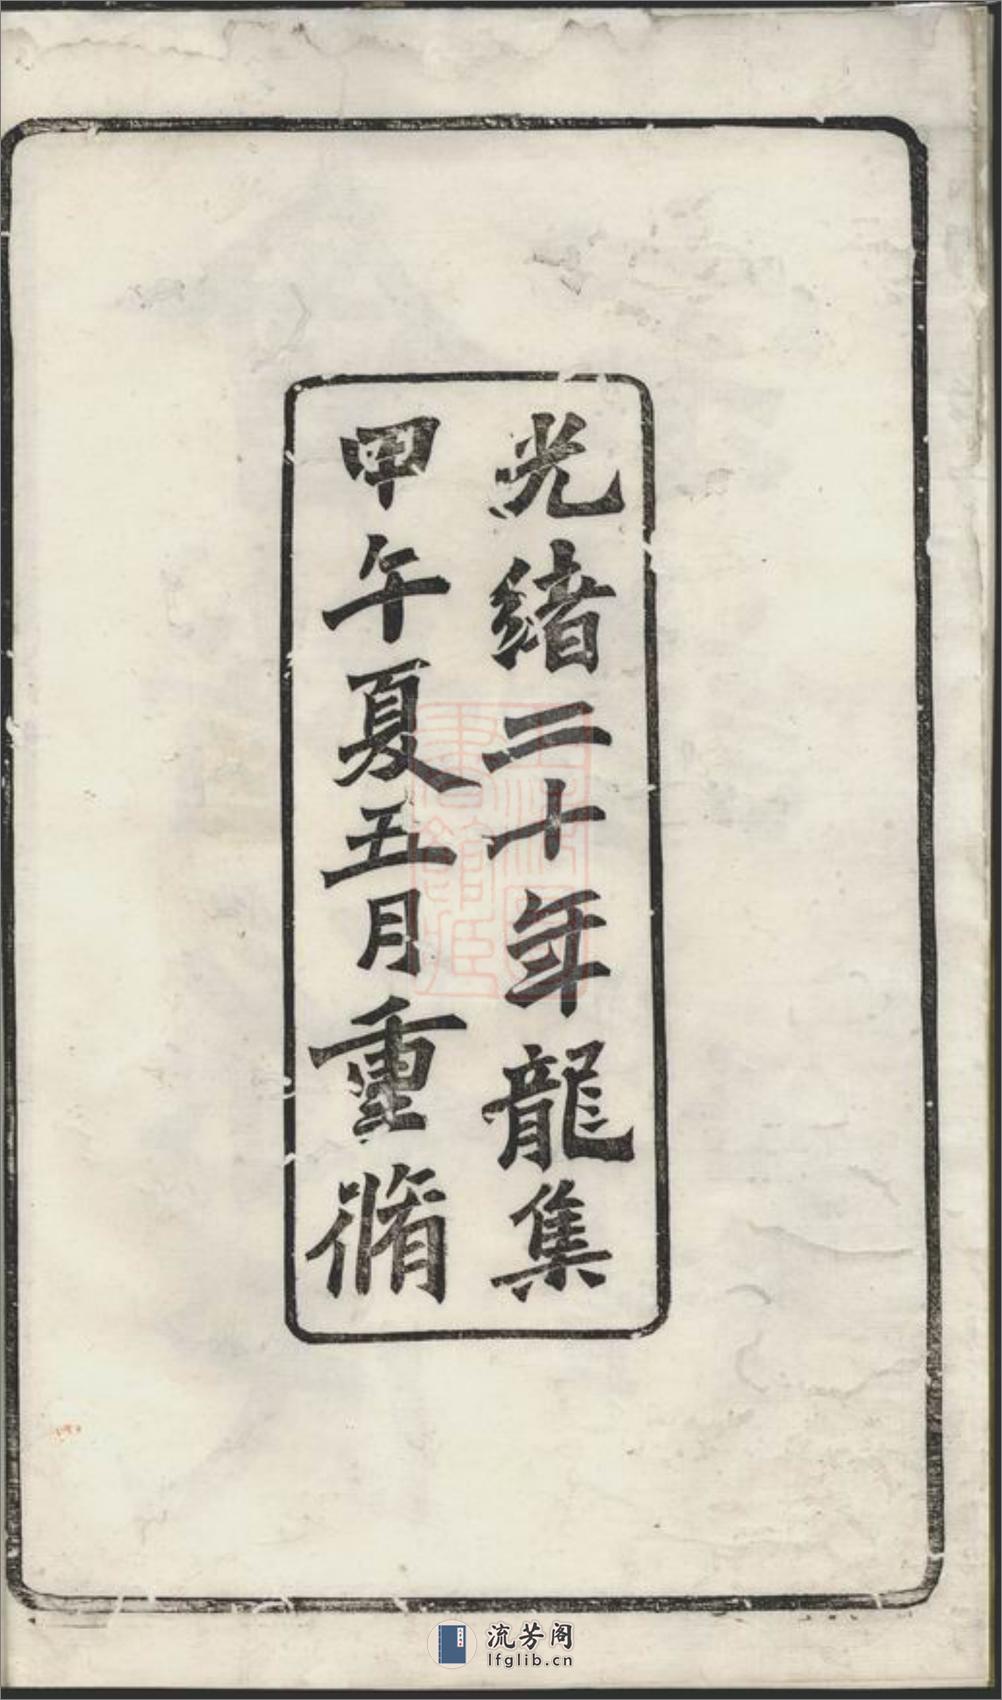 光緒二十年龍集
甲午夏五月重脩
流芳阁
lfglib.cn